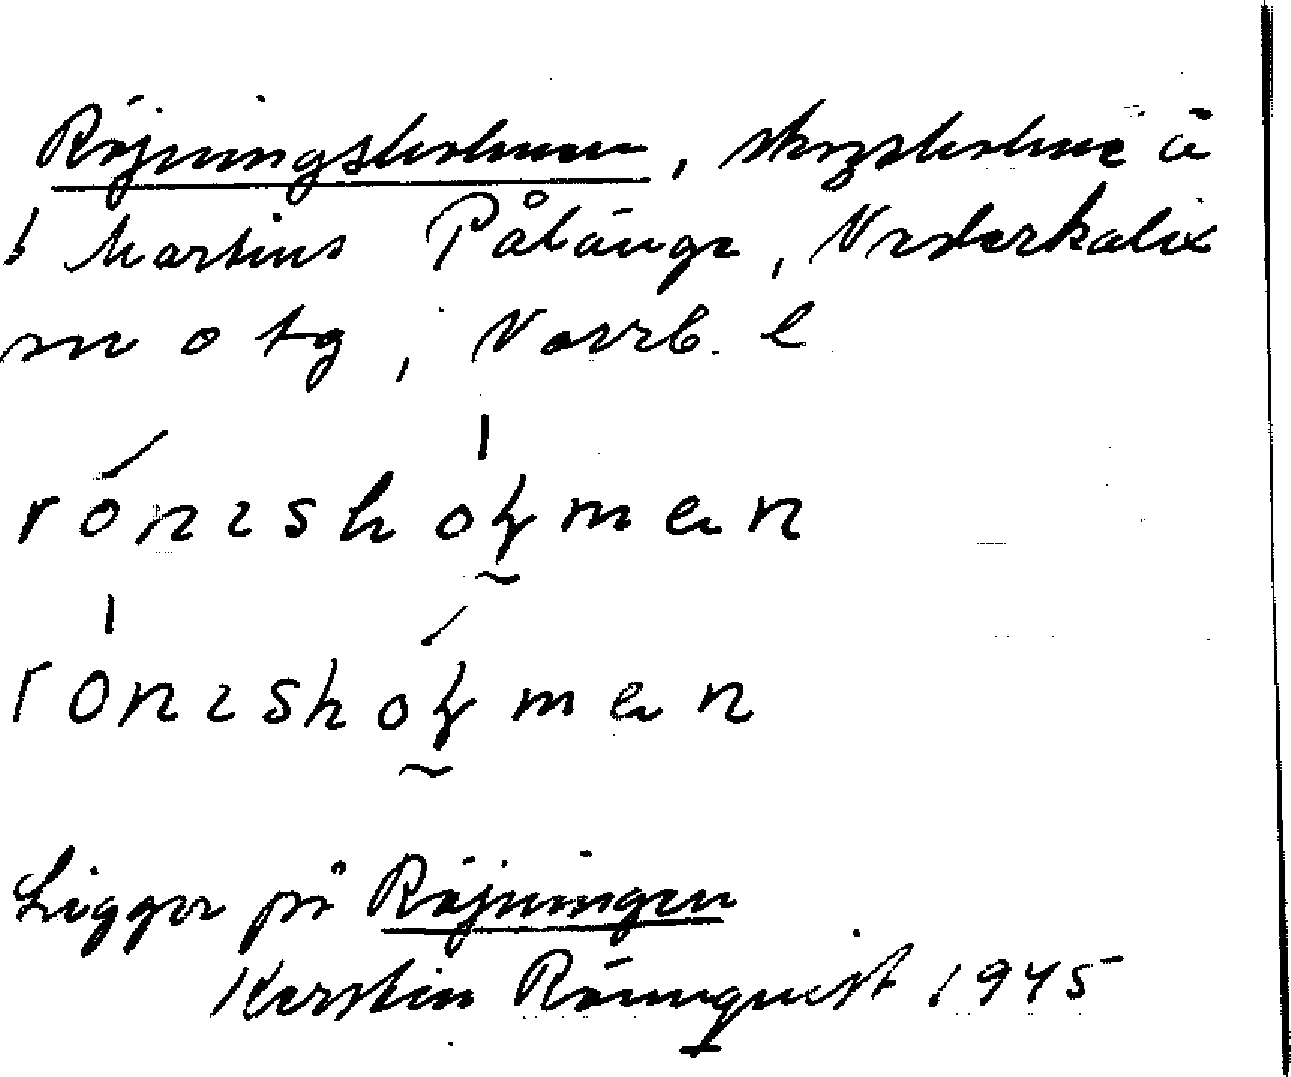 Röjningsholmen, skogsholme ä
t Martins Pålänge, Nederkalix
sn o tg, Norrb. l
rónıshoɽmen
rónıshoɽmen
Ligger på Röjningen
Kerstin Rönnquist 1945